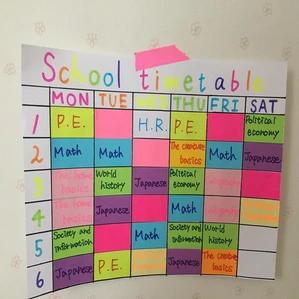 School timetable
MON TUE WED THU FRI SAT
1 P.E. H.R. P.E. Political economy
2 Math Math The creative basics Math Japanese
3 The home basics World history Japanese Political economy
4 The home basics Japanese Math
5 Society and information Math Society and information World history
6 Japanese P.E. Japanese The creative basics